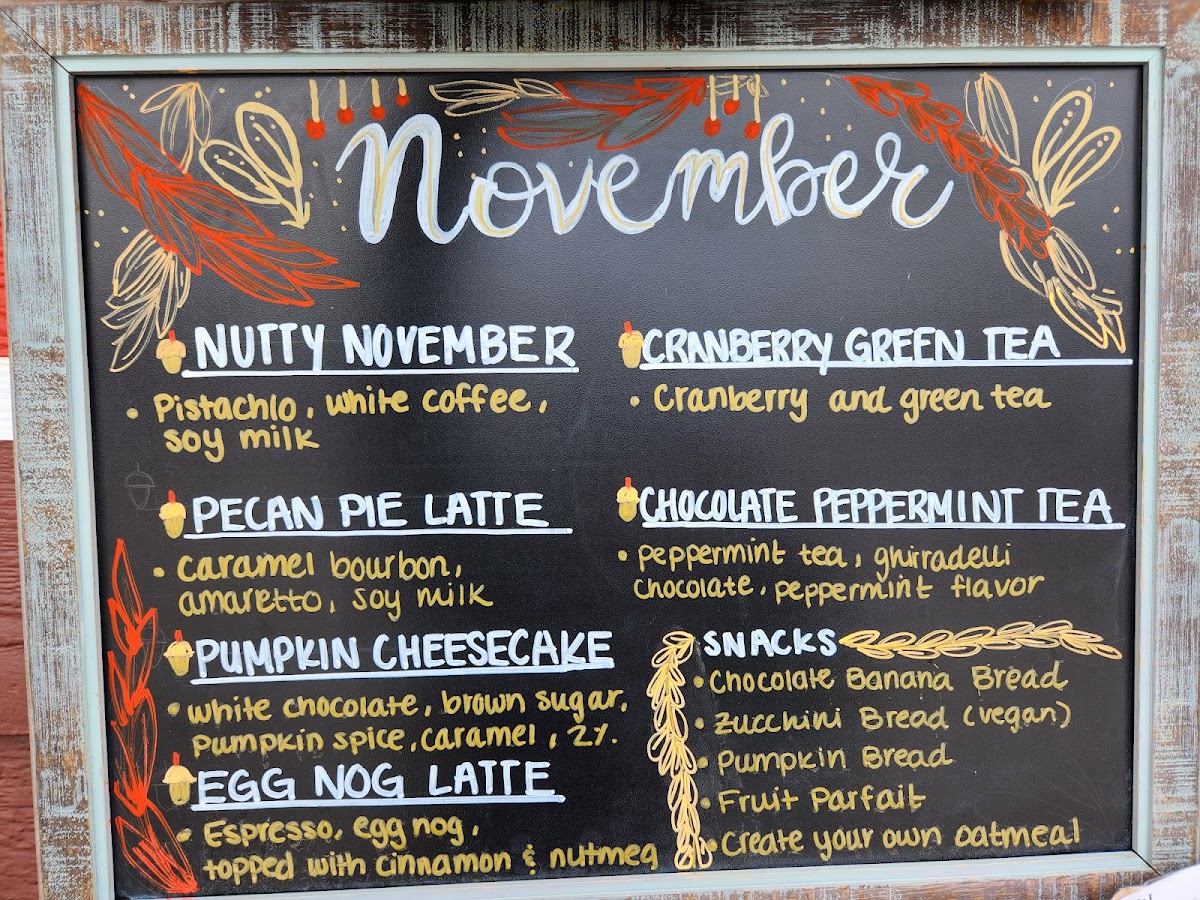 November
NUTTY NOVEMBER
• Pistachio, white coffee,
soy milk
PECAN PIE LATTE
• caramel bourbon,
amaretto, soy milk
PUMPKIN CHEESECAKE
• white chocolate, brown sugar,
pumpkin spice, caramel, 2%.
EGG NOG LATTE
• Espresso, egg nog,
topped with cinnamon & nutmeg
CRANBERRY GREEN TEA
• Cranberry and green tea
CHOCOLATE PEPPERMINT TEA
• peppermint tea, ghirradelli
chocolate, peppermint flavor
SNACKS
• Chocolate Banana Bread
• Zucchini Bread (vegan)
• Pumpkin Bread
• Fruit Parfait
• Create your own oatmeal